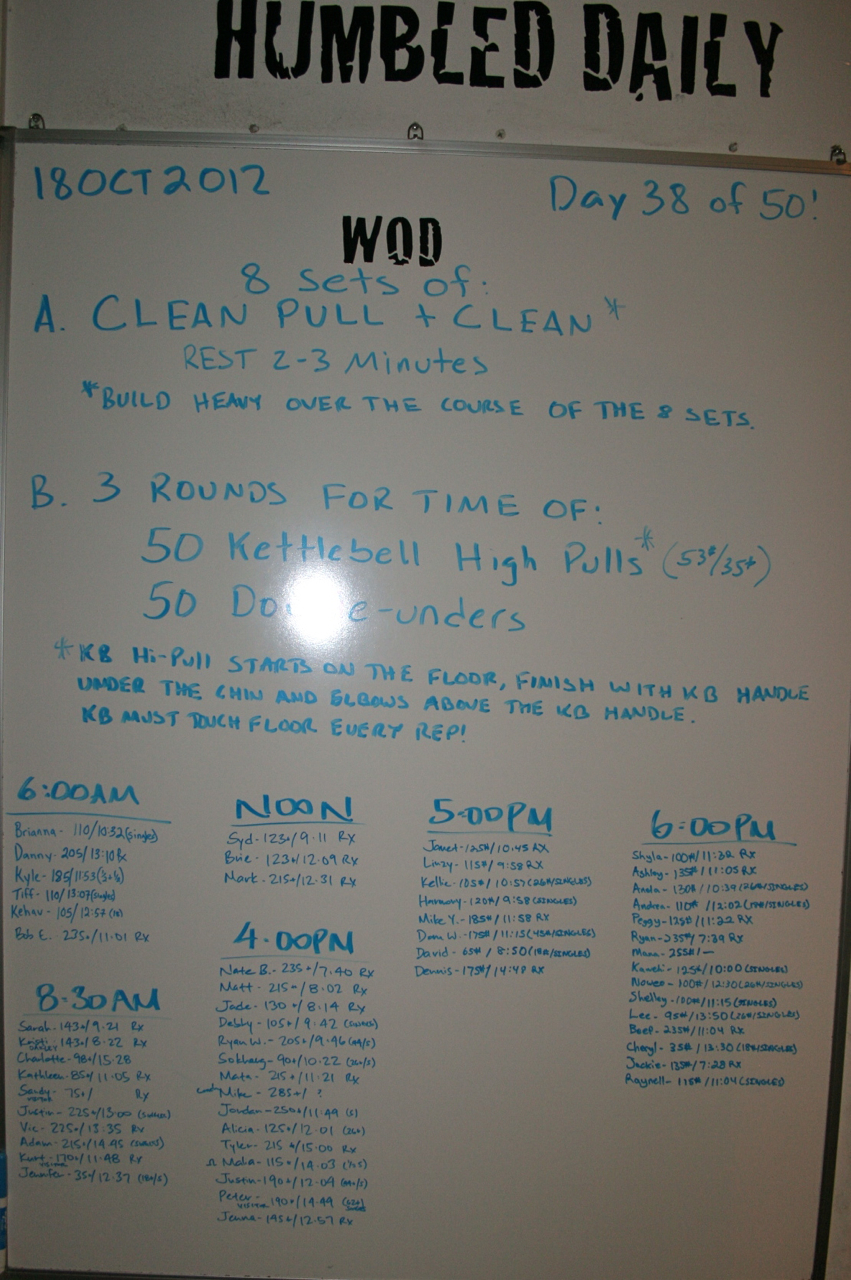 HUMBLED DAILY
18 OCT 2012
Day 38 of 50!
WOD
8 sets of:
A. CLEAN PULL + CLEAN*
REST 2-3 Minutes
*BUILD HEAVY OVER THE COURSE OF THE 8 SETS.
B. 3 ROUNDS FOR TIME OF:
50 Kettlebell High Pulls* (53#/35#)
50 Do e-unders
*KB Hi-Pull STARTS ON THE FLOOR, FINISH WITH KB HANDLE
UNDER THE CHIN AND ELBOWS ABOVE THE KB HANDLE.
KB MUST TOUCH FLOOR EVERY REP!
6:00AM
Brianna- 110/10:32 (singles)
Danny- 205/13:10 Rx
Kyle- 185/11:53
Tiff- 110/13:07 (singles)
105/12:57
Bob E. 235#/11:01 Rx
8:30AM
Sarah- 143#/9:21 Rx
Kristi 143#/8:22 Rx
Charlotte- 98#/15:28
Kathleen- 85#/11:05 Rx
Sandy- 75#/ Rx
Justin- 225#/13:00
Vic- 225#/13:35 Rx
Adam- 215#/14:45
Kurt- 170#/11:48 Rx
Jennifer- 35#/12:37
NOON
Syd- 123#/9:11 Rx
Brie- 123#/12:09 Rx
Mark- 215#/12:31 Rx
4:00PM
Nate B.- 235#/7:40 Rx
Matt- 215#/8:02 Rx
Jade- 130#/8:14 Rx
Debby- 105#/9:42
Ryan W.- 205#/9:46
90#/10:22
215#/11:21 Rx
Mike- 285#/ ?
Jordan- 250#/11:49 (S)
Alicia- 125#/12:01
Tyler- 215#/15:00 Rx
Malia- 115#/14:03
Justin- 190#/12:04
Peter- 190#/14:49
VISITOR
Jenna- 145#/12:57 Rx
5:00PM
Janet- 125#/10:45 RX
Linzy- 115#/9:58 RX
Kellie- 105#/10:57 (SINGLES)
Harmony- 120#/9:58 (SINGLES)
Mike Y.- 185#/11:58 RX
Dan W.- 175#/11:15 (SINGLES)
David- 65#/8:50 (SINGLES)
Dennis- 175#/14:40 RX
6:00PM
Shyla- 100#/11:32 Rx
Ashley- 135#/11:05 RX
130#/10:39 (SINGLES)
Andrea- 110#/12:02 (SINGLES)
Peggy- 125#/11:22 RX
Ryan- 235#/7:39 Rx
255#/-
125#/10:00 (SINGLES)
100#/12:30 (SINGLES)
Shelley- 100#/11:15 (SINGLES)
Lee- 95#/13:50 (SINGLES)
Beep- 235#/11:04 RX
Cheryl- 35#/13:30 (SINGLES)
Jackie- 135#/7:28 RX
Raynell- 115#/11:04 (SINGLES)